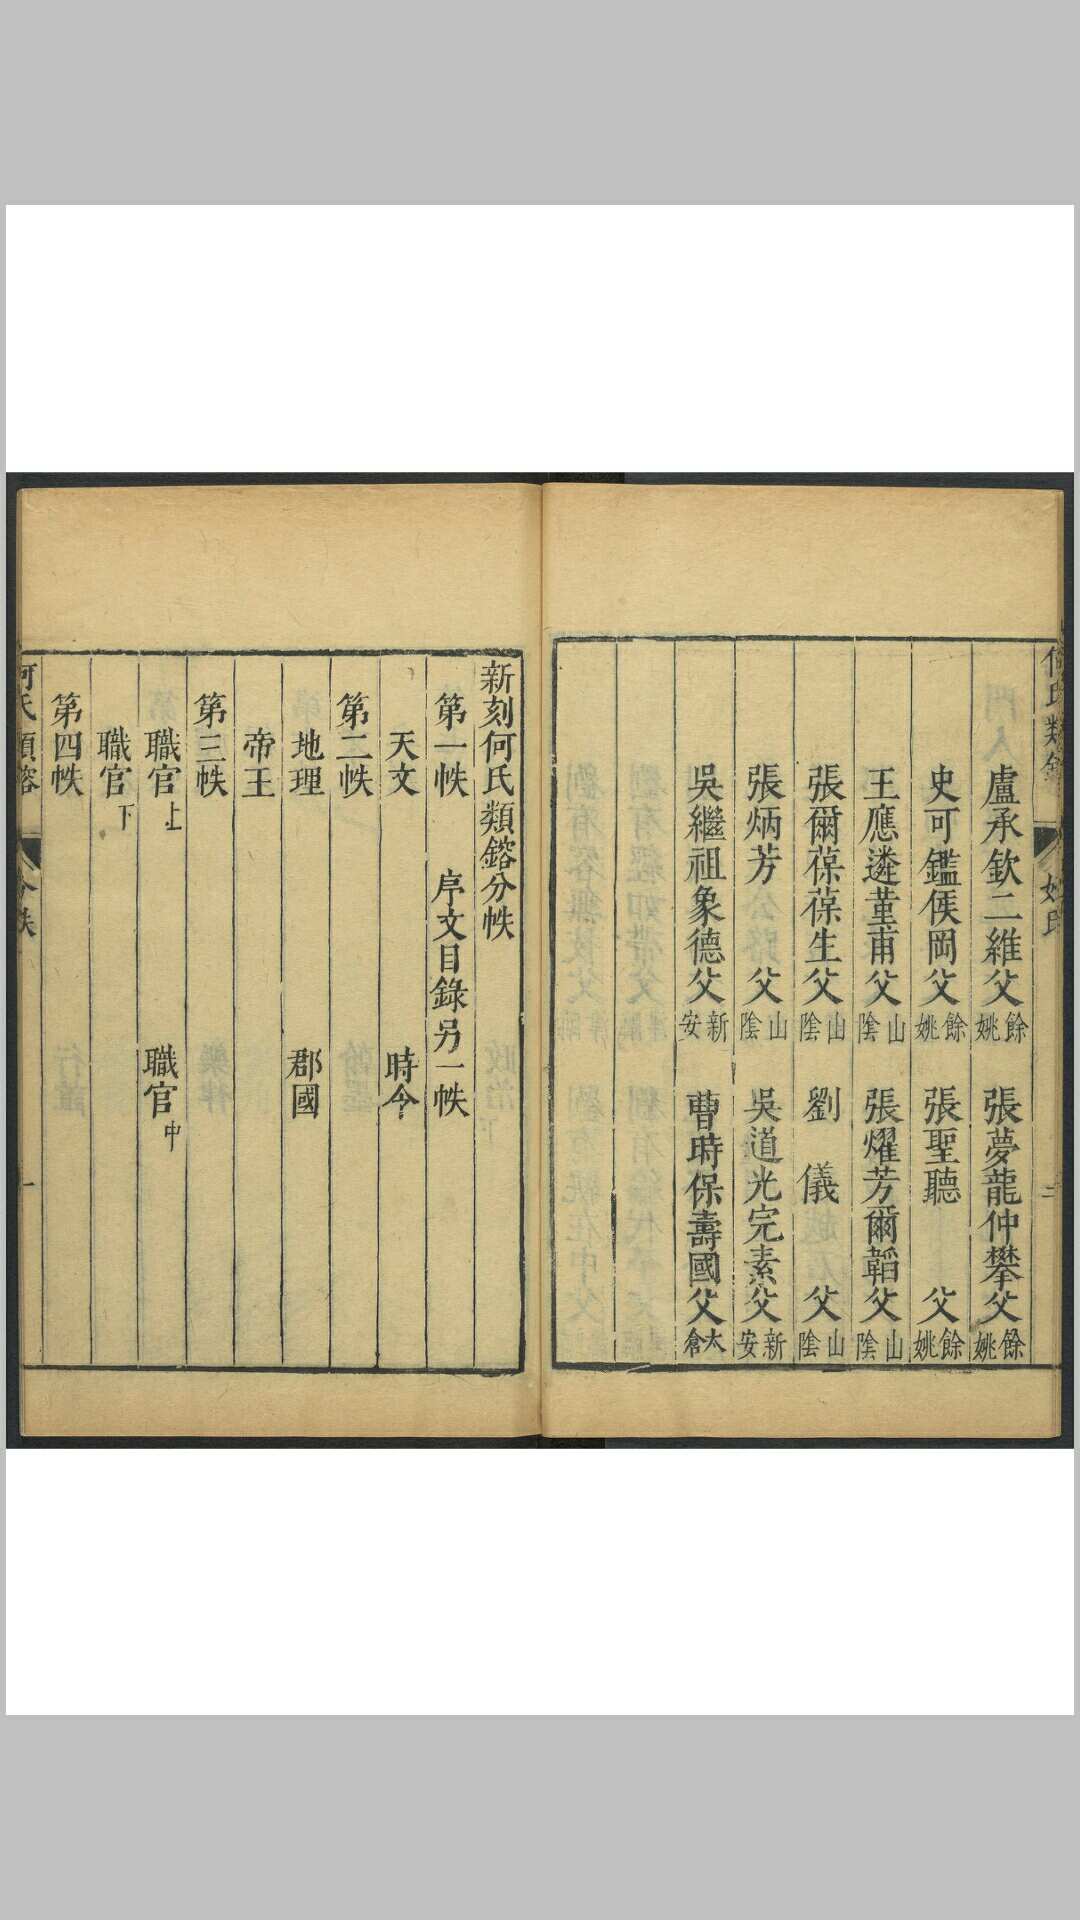 何氏類鎔 姓氏 二
盧承欽二維父 餘姚 張夢龍仲攀父 餘姚
史可鑑侯岡父 餘姚 張聖聽 父 餘姚
王應遴菫甫父 山陰 張燿芳爾韜父 山陰
張爾葆葆生父 山陰 劉 儀 父 山陰
張炳芳 父 山陰 吳道光完素父 新安
吳繼祖象德父 新安 曹時保壽國父 太倉
新刻何氏類鎔分帙
第一帙 序文目錄另一帙
天文 時令
第二帙
地理 郡國
帝王
第三帙
職官上 職官中
職官下
第四帙
何氏類鎔 分帙 一